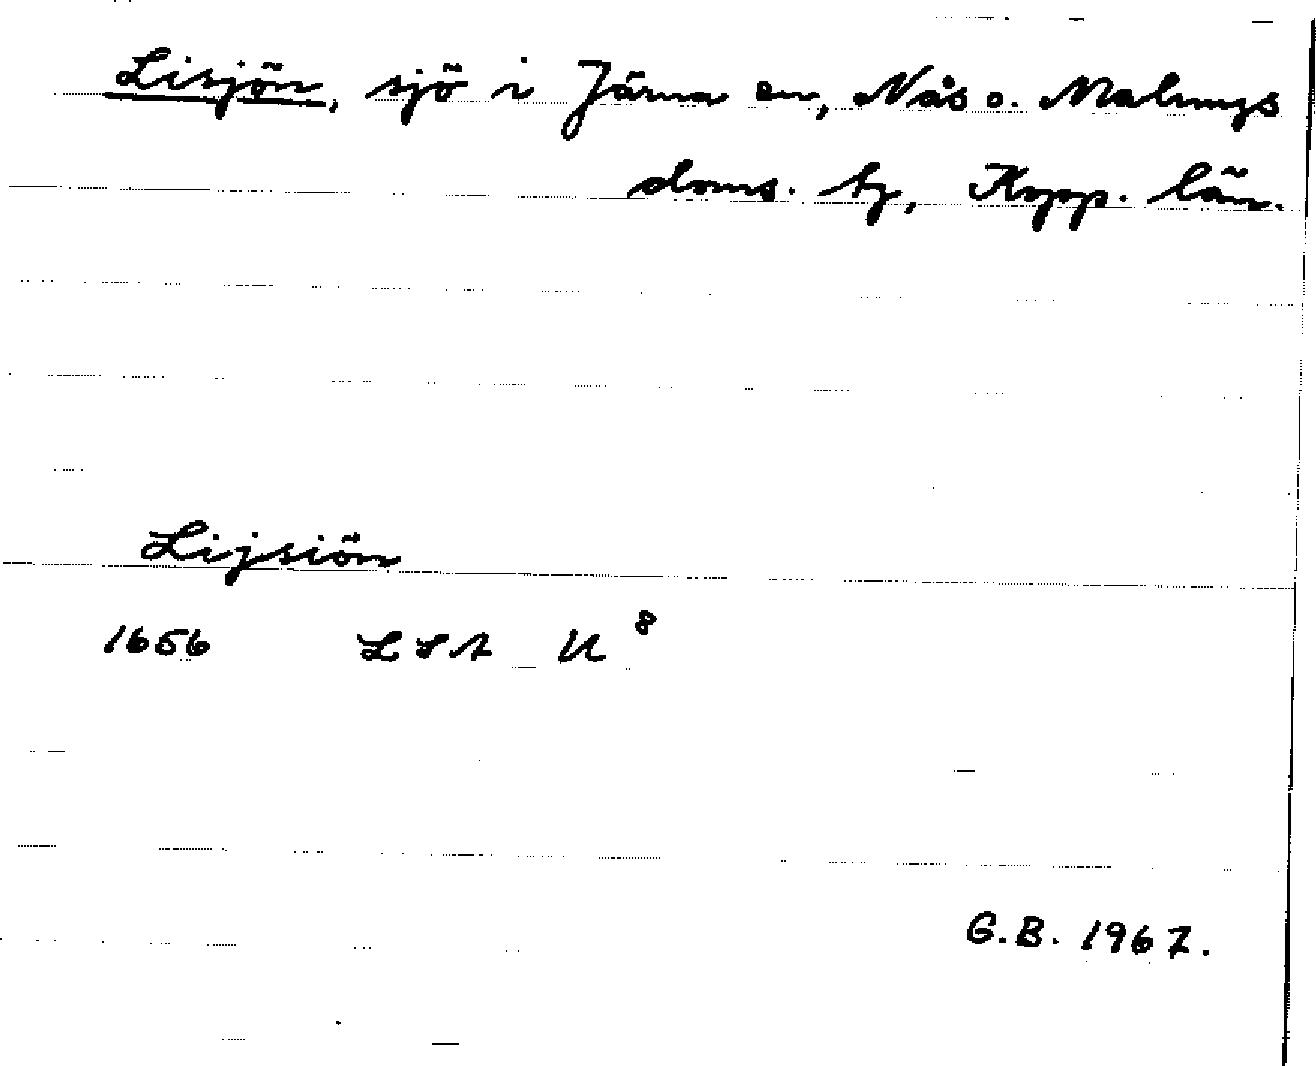 Lisjön, sjö i Järna sn, Nås o. Malungs
doms. tg, Kopp. län.
Lijsiön
1656 LSA U 8
G.B. 1967.